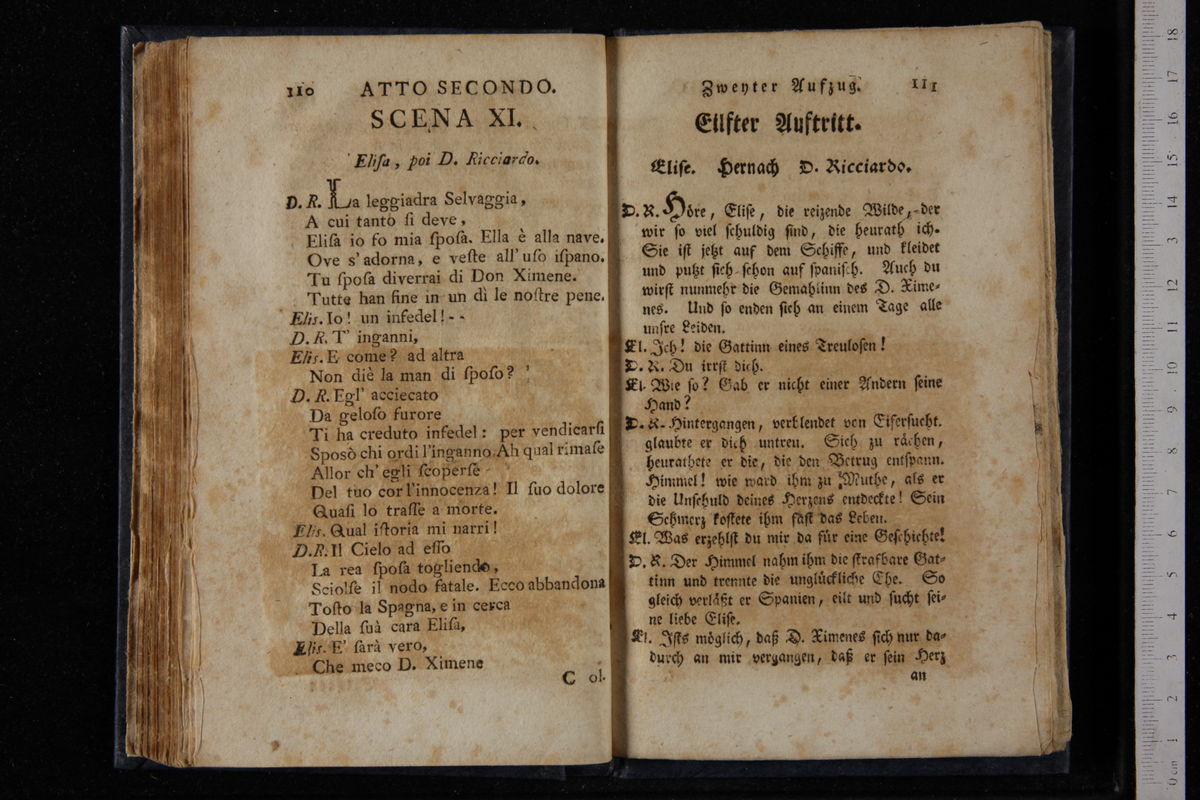 110 ATTO SECONDO.
SCENA XI.
Eliſa, poi D. Ricciardo.
D. R. La leggiadra Selvaggia,
A cui tanto ſi deve,
Eliſa io fo mia ſpoſa. Ella è alla nave.
Ove s'adorna, e veſte all'uſo iſpano.
Tu ſpoſa diverrai di Don Ximene.
Tutte han fine in un dì le noſtre pene.
Elis. Io! un infedel! - -
D. R. T' inganni,
Elis. E come? ad altra
Non diè la man di ſpoſo?
D. R. Egl' acciecato
Da geloſo furore
Ti ha creduto infedel: per vendicarſi
Sposò chi ordì l'inganno. Ah qual rimaſe
Allor ch' egli ſcoperſe
Del tuo cor l'innocenza! Il ſuo dolore
Quaſi lo traſſe a morte.
Elis. Qual iſtoria mi narri!
D. R. Il Cielo ad eſſo
La rea ſpoſa togliendo,
Sciolſe il nodo fatale. Ecco abbandona
Toſto la Spagna, e in cerca
Della ſuà cara Eliſa,
Elis. E' ſarà vero,
Che meco D. Ximene
C ol-
Zweyter Aufzug. 111
Eilfter Auftritt.
Eliſe. Hernach D. Ricciardo.
D. R. Höre, Eliſe, die reizende Wilde, der
wir ſo viel ſchuldig ſind, die heurath ich.
Sie iſt jetzt auf dem Schiffe, und kleidet
und putzt ſich ſchon auf ſpaniſch. Auch du
wirſt nunmehr die Gemahlinn des D. Xime-
nes. Und ſo enden ſich an einem Tage alle
unſre Leiden.
El. Ich! die Gattinn eines Treuloſen!
D. R. Du irrſt dich.
El. Wie ſo? Gab er nicht einer Andern ſeine
Hand?
D. R. Hintergangen, verblendet von Eiferſucht.
glaubte er dich untreu. Sich zu rächen,
heurathete er die, die den Betrug entſpann.
Himmel! wie ward ihm zu Muthe, als er
die Unſchuld deines Herzens entdeckte! Sein
Schmerz koſtete ihm faſt das Leben.
El. Was erzehlſt du mir da für eine Geſchichte!
D. R. Der Himmel nahm ihm die ſtrafbare Gat-
tinn und trennte die unglückliche Ehe. So
gleich verläßt er Spanien, eilt und ſucht ſei-
ne liebe Eliſe.
El. Iſts möglich, daß D. Ximenes ſich nur da-
durch an mir vergangen, daß er ſein Herz
an
0 cm 1 2 3 4 5 6 7 8 9 10 11 12 13 14 15 16 17 18